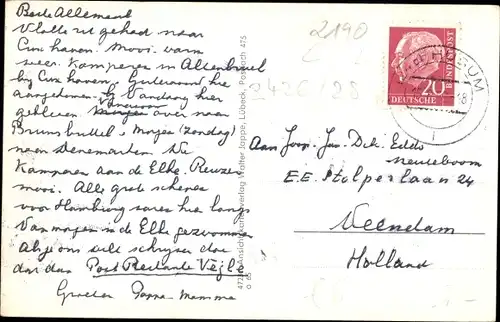 Beste Allemaal
Vlotte rit gehad naar
Cuxhaven. Mooi warm
weer. Kamperen in Altenbruch
bij Cuxhaven. Gisteravond hier
aangekomen. Vandaag hier
gebleven Morgen over naar
Vanavond
Brunsbüttel. Morgen (Zondag)
naar Denemarken. We
Kamperen aan de Elbe. Reuze
mooi. Alle grote schepen
voor Hamburg varen hier langs
Vanmorgen in de Elbe gezwommen
Als je ons wilt schrijven doe
dat dan Poste Restante Vejle
Groeten Pappa-Mamma
2190
2426/28
Ansichtskartenverlag Walter Joppe, Lübeck, Postfach 475
20
DEUTSCHE
BUNDESPOST
HUSUM
Aan Joop. Jos. Dik. Edds
Neuteboom
E.E. Stolperlaan 24
Veendam
Holland